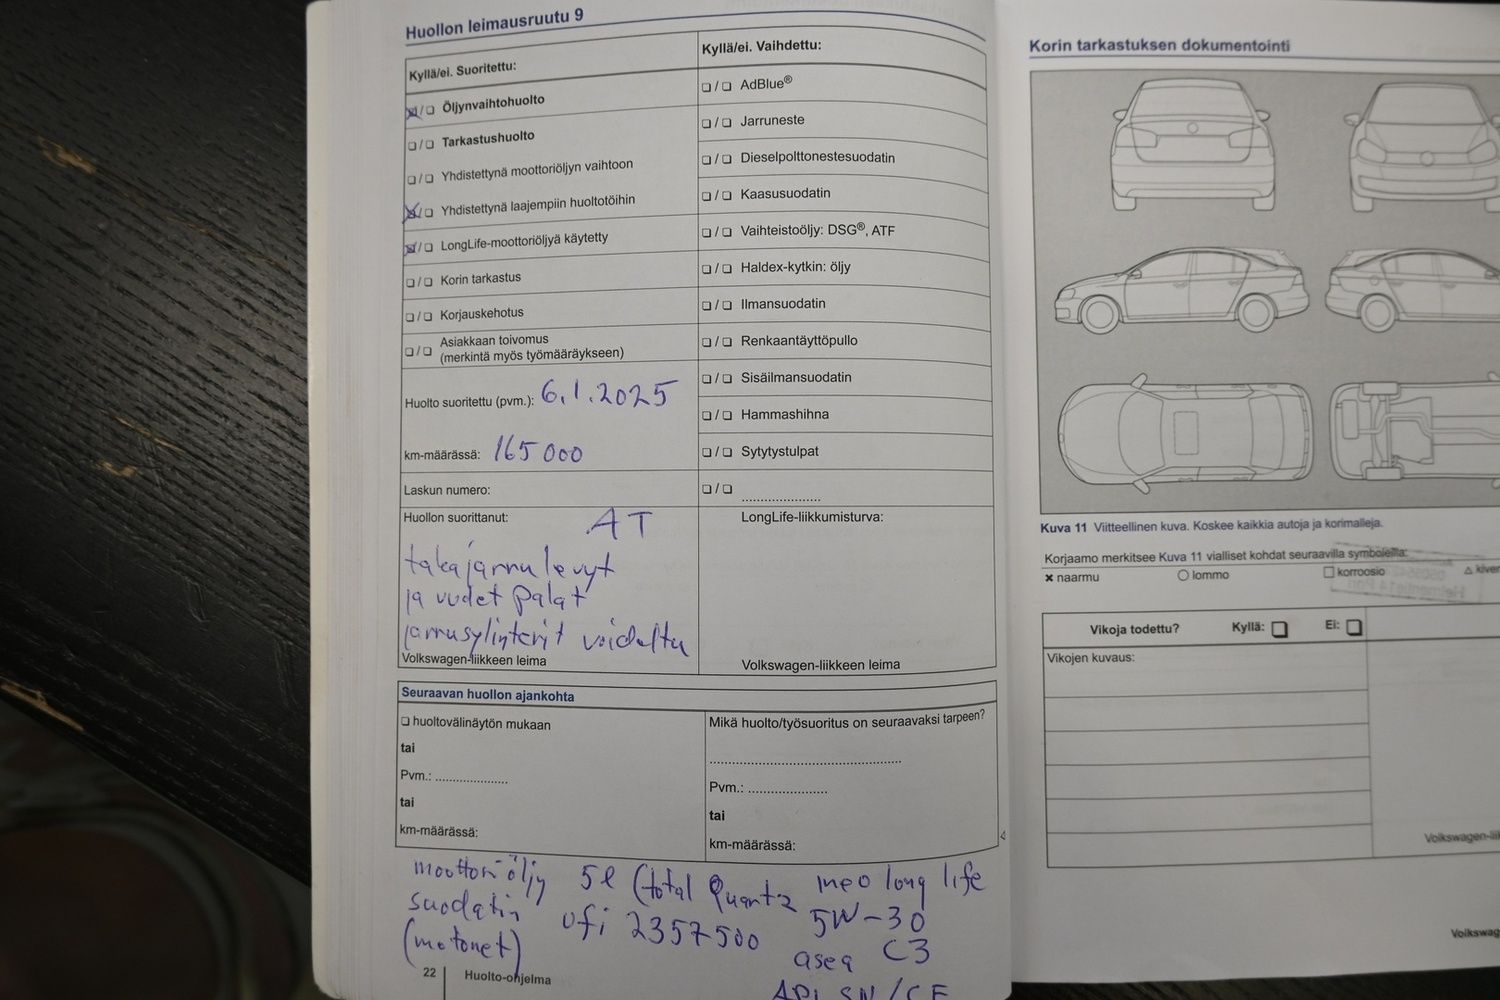 Huollon leimausruutu 9
Kyllä/ei. Suoritettu:
❏/❏ Öljynvaihtohuolto
❏/❏ Tarkastushuolto
❏/❏ Yhdistettynä moottoriöljyn vaihtoon
❏/❏ Yhdistettynä laajempiin huoltotöihin
❏/❏ LongLife-moottoriöljyä käytetty
❏/❏ Korin tarkastus
❏/❏ Korjauskehotus
❏/❏ Asiakkaan toivomus
(merkintä myös työmääräykseen)
Huolto suoritettu (pvm.): 6.1.2025
km-määrässä: 165 000
Laskun numero:
Huollon suorittanut: AT
takajarrulevyt
ja uudet palat
jarrusylinterit voideltu
Volkswagen-liikkeen leima
Kyllä/ei. Vaihdettu:
❏/❏ AdBlue®
❏/❏ Jarruneste
❏/❏ Dieselpolttonestesuodatin
❏/❏ Kaasusuodatin
❏/❏ Vaihteistoöljy: DSG®, ATF
❏/❏ Haldex-kytkin: öljy
❏/❏ Ilmansuodatin
❏/❏ Renkaantäyttöpullo
❏/❏ Sisäilmansuodatin
❏/❏ Hammashihna
❏/❏ Sytytystulpat
❏/❏ .....................
LongLife-liikkumisturva:
Volkswagen-liikkeen leima
Seuraavan huollon ajankohta
❏ huoltovälinäytön mukaan
tai
Pvm.: ...................
tai
km-määrässä:
Mikä huolto/työsuoritus on seuraavaksi tarpeen?
..................................................
Pvm.: ....................
tai
km-määrässä:
moottoriöljy 5l (total Quartz ineo long life
suodatin ufi 2357500 5W-30
(motonet) acea C3
API SN/CF
22 Huolto-ohjelma
Korin tarkastuksen dokumentointi
Kuva 11 Viitteellinen kuva. Koskee kaikkia autoja ja korimalleja.
Korjaamo merkitsee Kuva 11 vialliset kohdat seuraavilla symboleilla:
× naarmu ○ lommo □ korroosio △ kiven
Vikoja todettu? Kyllä: ❏ Ei: ❏
Vikojen kuvaus:
Volkswagen-lii
Volkswag